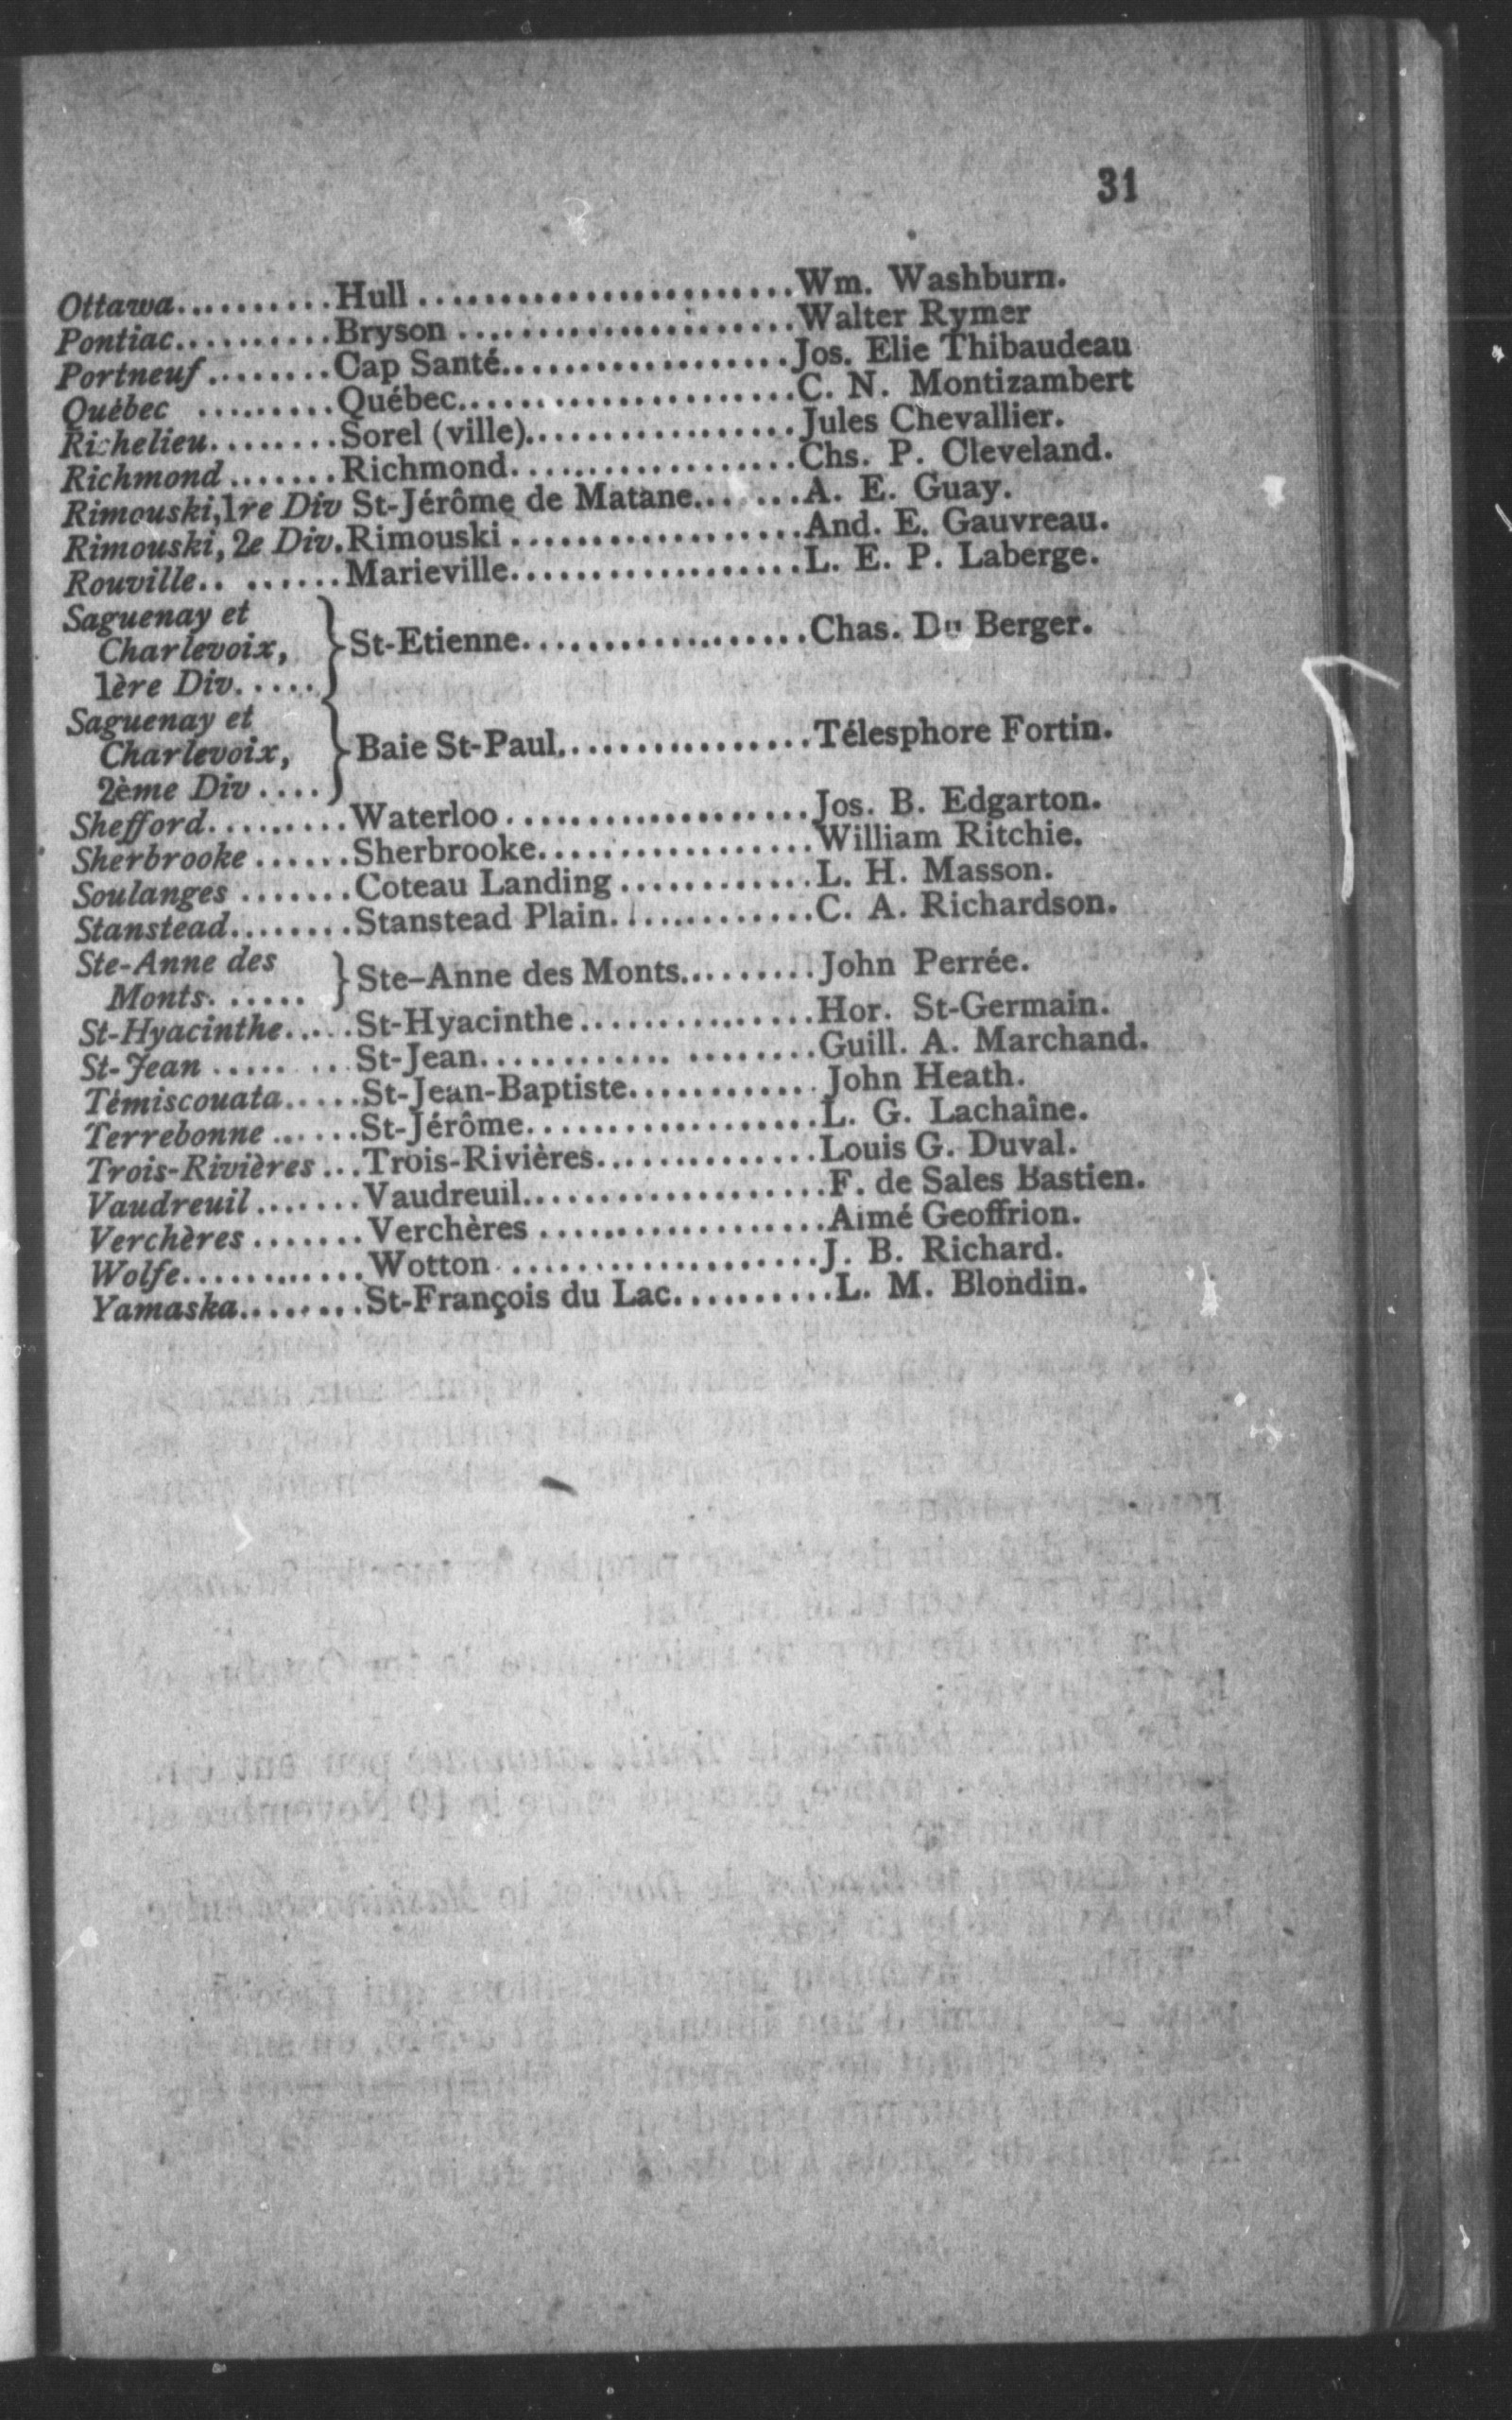 31
Ottawa..........Hull........................Wm. Washburn.
Pontiac..........Bryson......................Walter Rymer
Portneuf........Cap Santé..................Jos. Elie Thibaudeau
Québec .........Québec.....................C. N. Montizambert
Richelieu........Sorel (ville).................Jules Chevallier.
Richmond.......Richmond..................Chs. P. Cleveland.
Rimouski,1re Div St-Jérôme de Matane.......A. E. Guay.
Rimouski, 2e Div.Rimouski..................And. E. Gauvreau.
Rouville.. ......Marieville..................L. E. P. Laberge.
Saguenay et
Charlevoix, }St-Etienne..................Chas. Du Berger.
1ère Div.....
Saguenay et
Charlevoix, }Baie St-Paul................Télesphore Fortin.
2ème Div....
Shefford.........Waterloo...................Jos. B. Edgarton.
Sherbrooke......Sherbrooke.................William Ritchie.
Soulanges.......Coteau Landing............L. H. Masson.
Stanstead........Stanstead Plain.............C. A. Richardson.
Ste-Anne des
Monts...... }Ste-Anne des Monts.........John Perrée.
St-Hyacinthe.....St-Hyacinthe...............Hor. St-Germain.
St-Jean..... ...St-Jean............ ........Guill. A. Marchand.
Témiscouata.....St-Jean-Baptiste............John Heath.
Terrebonne......St-Jérôme..................L. G. Lachaîne.
Trois-Rivières...Trois-Rivières..............Louis G. Duval.
Vaudreuil.......Vaudreuil...................F. de Sales Bastien.
Verchères.......Verchères..................Aimé Geoffrion.
Wolfe...........Wotton....................J. B. Richard.
Yamaska........St-François du Lac..........L. M. Blondin.